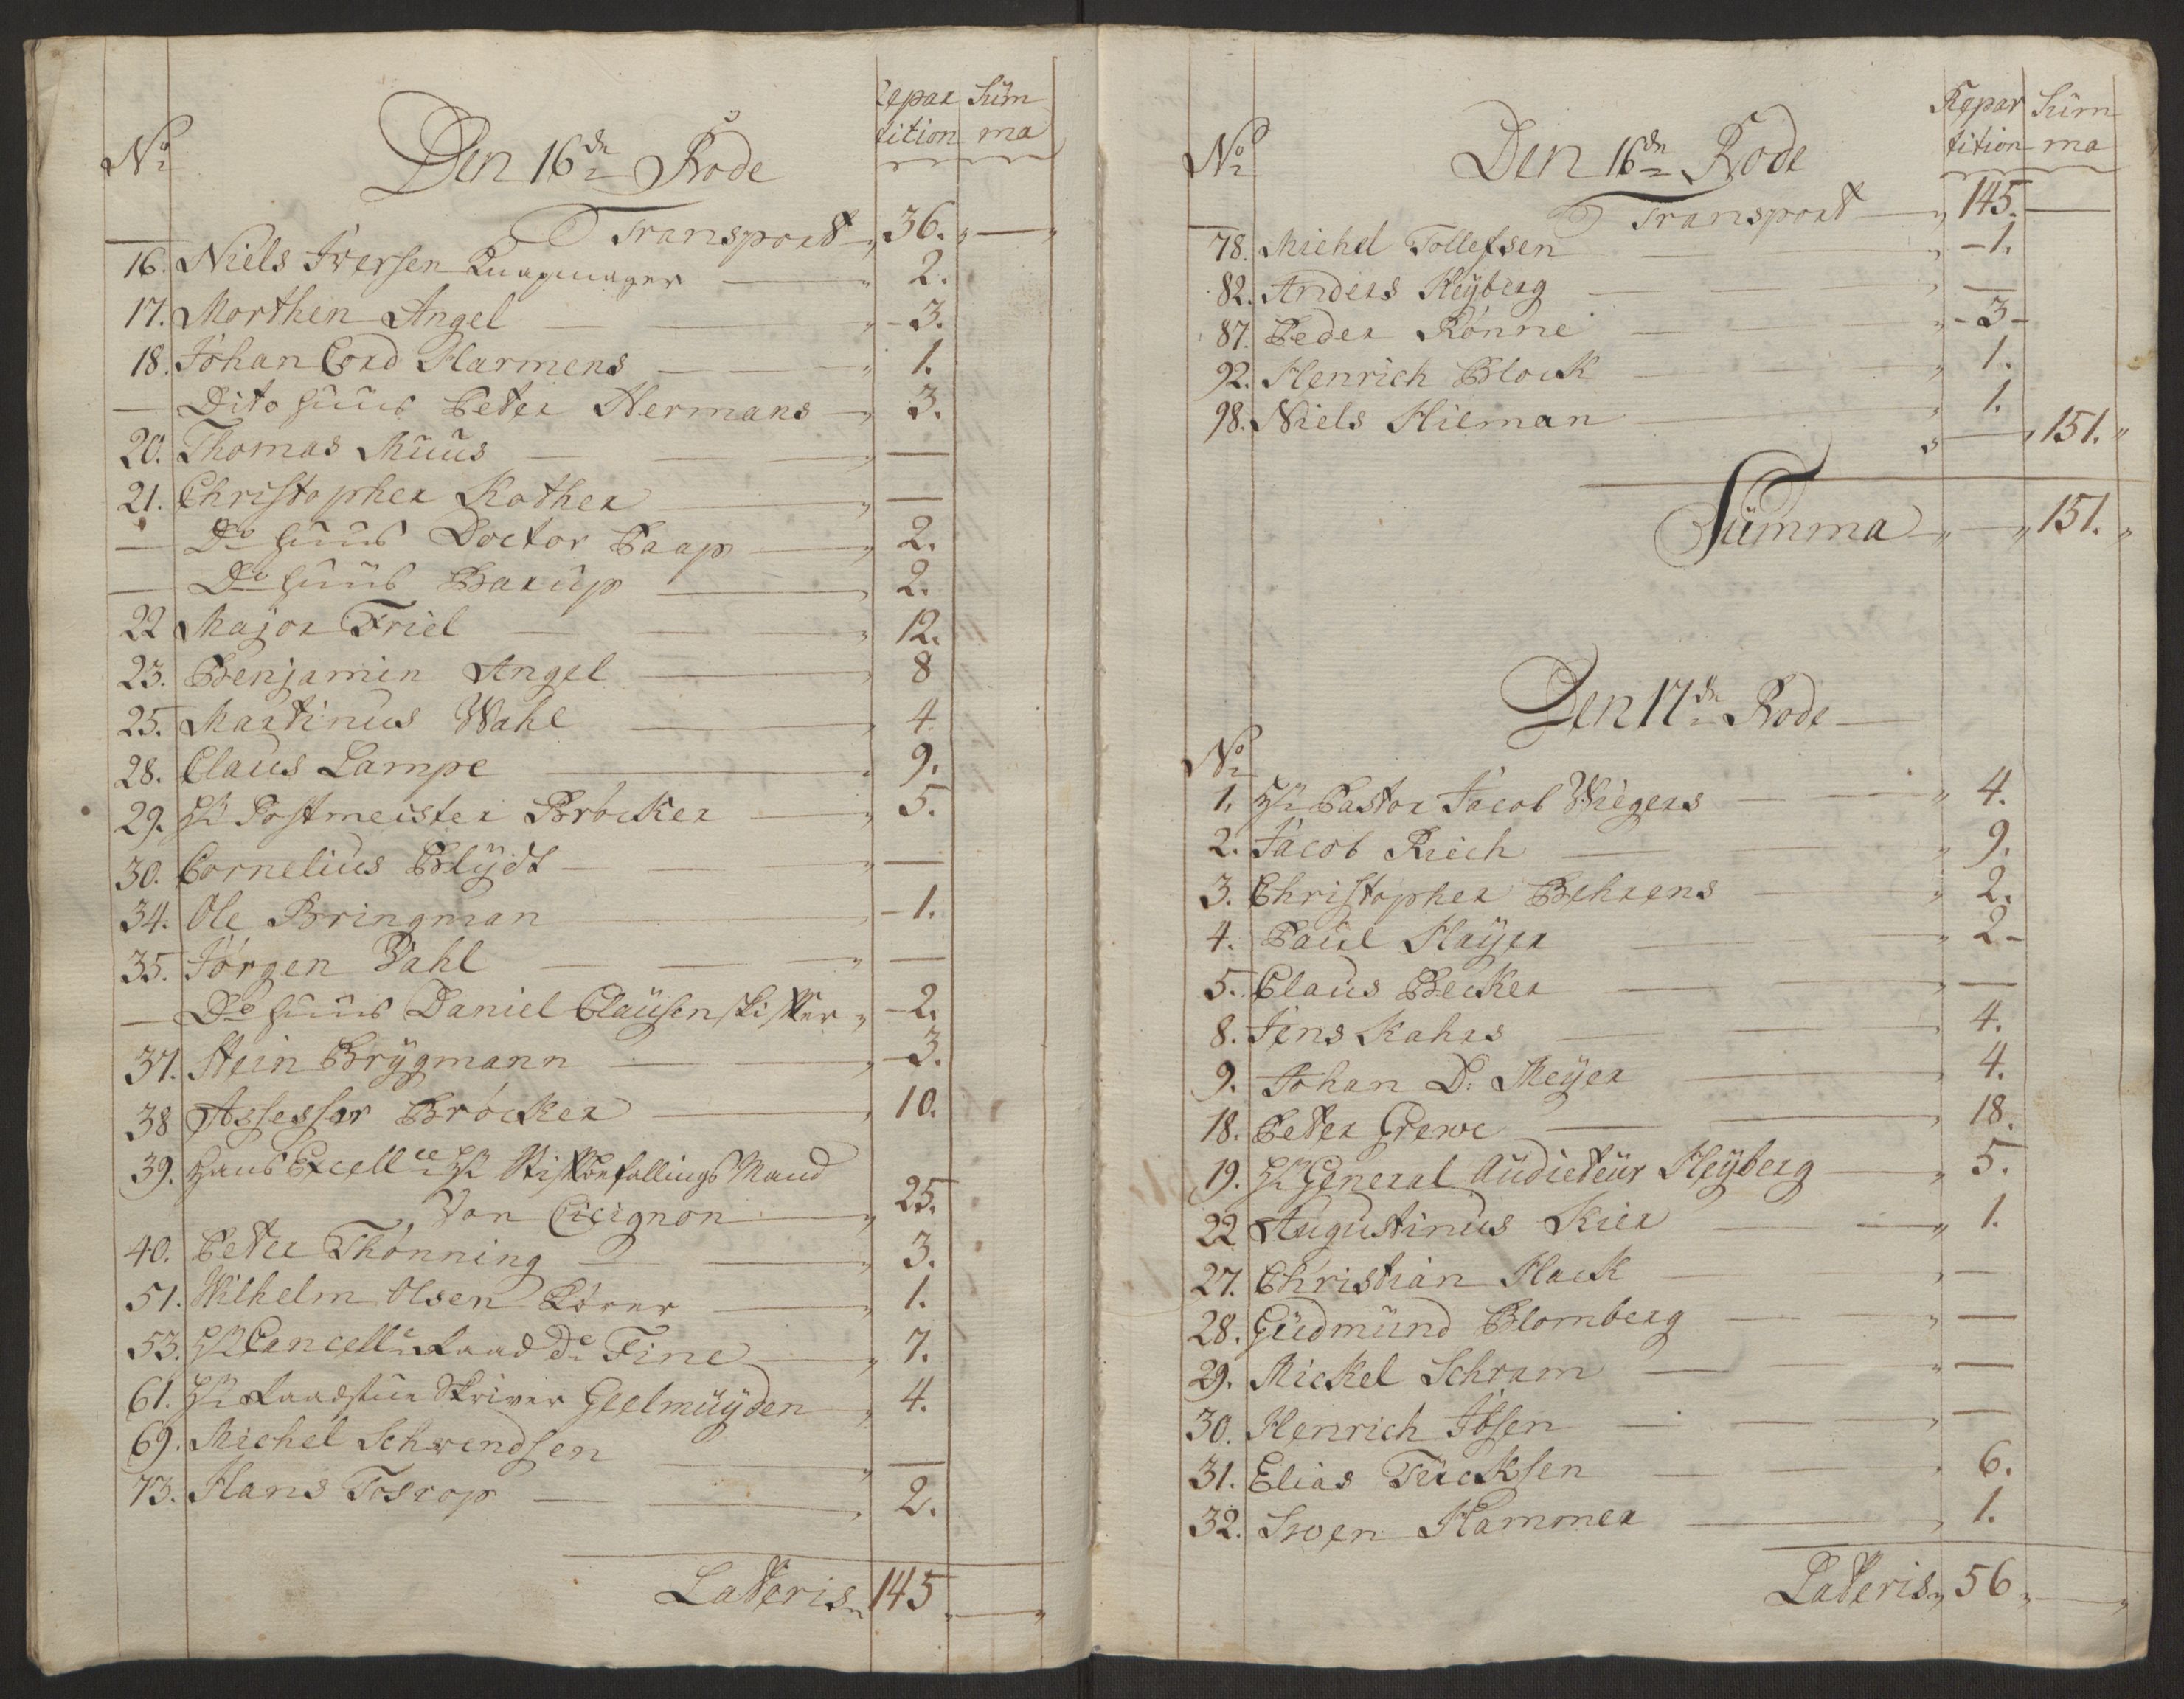 No Den 16de Rode Repar Sum
tition ma
Transport 36.
16. Niels Iversen Knapmager 2.
17. Morthen Angel 3.
18. Johan Cord Harmens 1.
— Dito huus Peter Hermans 3.
20. Thomas Muus —
21. Christopher Kother —
— Do huus Doctor Paap 2.
— Do huus Barup 2.
22 Major Friel 12.
23. Benjamin Angel 8
25. Martinus Wahl 4
28. Claus Lampe 9.
29. Hr Postmeister Bröcker 5.
30. Cornelius Blÿdt —
34. Ole Bringman 1.
35. Jörgen Dahl —
— Do huus Daniel Clausen 2.
37. Stein Brÿgmann 3.
38 Assessor Bröcker 10.
39. Hans Excellce Hr Stiftbefallings Mand
Von Cicignon 25.
40. Peter Thönning 3.
51. Wilhelm Olsen 1.
53. Hr Cancellie Raad De Fine 7.
61. Hr Raadstue Skriver Geelmuÿden 4.
69. Michel Schwendsen —
73. Hans Tostrop 2.
Lateris 145
No Den 16de Rode Repar Sum
tition ma
Transport 145.
78. Michel Tollefsen 1.
82. Anders Heÿberg —
87. Peder Rönne 3
92. Henrich Block 1.
98. Niels Hilman 1.
— 151.
Summa — 151.
Den 17de Rode
No
1. Hr Pastor Jacob Wiegers 4.
2. Jacob Riech 9.
3. Christopher Behrens 2.
4. Paul Haÿer 2
5. Claus Becker —
8. Jens Kahrs 4.
9. Johan D: Meÿer 4.
18. Peter Grewe 18.
19. Hr General Audieteur Heÿberg 5.
22 Augustinus Kier 1.
27. Christian Hack —
28. Gudmund Blomberg —
29. Mickel Schram —
30. Henrich Ibsen —
31. Elias Tücksen 6.
32. Swen Hammer 1.
Lateris 56